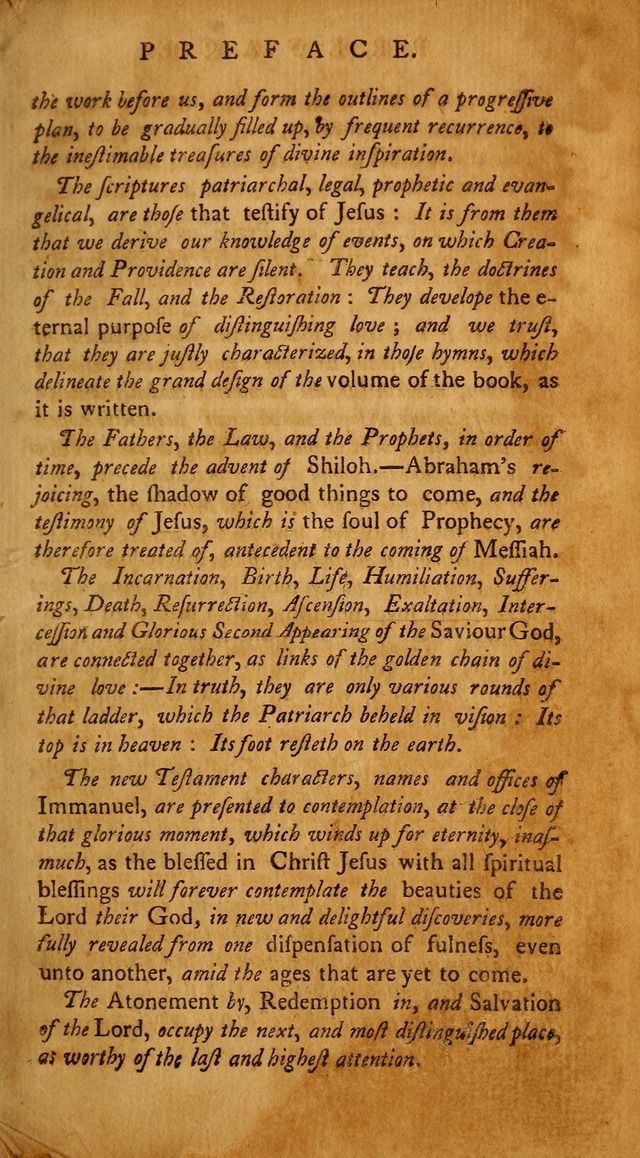 PREFACE.
the work before us, and form the outlines of a progreſſive
plan, to be gradually filled up, by frequent recurrence, to
the ineſtimable treaſures of divine inſpiration.
The ſcriptures patriarchal, legal, prophetic and evan-
gelical, are thoſe that teſtify of Jeſus : It is from them
that we derive our knowledge of events, on which Crea-
tion and Providence are ſilent. They teach, the doctrines
of the Fall, and the Reſtoration : They develope the e-
ternal purpoſe of diſtinguiſhing love ; and we truſt,
that they are juſtly characterized, in thoſe hymns, which
delineate the grand deſign of the volume of the book, as
it is written.
The Fathers, the Law, and the Prophets, in order of
time, precede the advent of Shiloh.—Abraham's re-
joicing, the ſhadow of good things to come, and the
teſtimony of Jeſus, which is the ſoul of Prophecy, are
therefore treated of, antecedent to the coming of Meſſiah.
The Incarnation, Birth, Life, Humiliation, Suffer-
ings, Death, Reſurrection, Aſcenſion, Exaltation, Inter-
ceſſion and Glorious Second Appearing of the Saviour God,
are connected together, as links of the golden chain of di-
vine love :—In truth, they are only various rounds of
that ladder, which the Patriarch beheld in viſion : Its
top is in heaven : Its foot reſteth on the earth.
The new Teſtament characters, names and offices of
Immanuel, are preſented to contemplation, at the cloſe of
that glorious moment, which winds up for eternity, inaſ-
much, as the bleſſed in Chriſt Jeſus with all ſpiritual
bleſſings will forever contemplate the beauties of the
Lord their God, in new and delightful diſcoveries, more
fully revealed from one diſpenſation of fulneſs, even
unto another, amid the ages that are yet to come.
The Atonement by, Redemption in, and Salvation
of the Lord, occupy the next, and moſt diſtinguiſhed place,
as worthy of the laſt and higheſt attention.